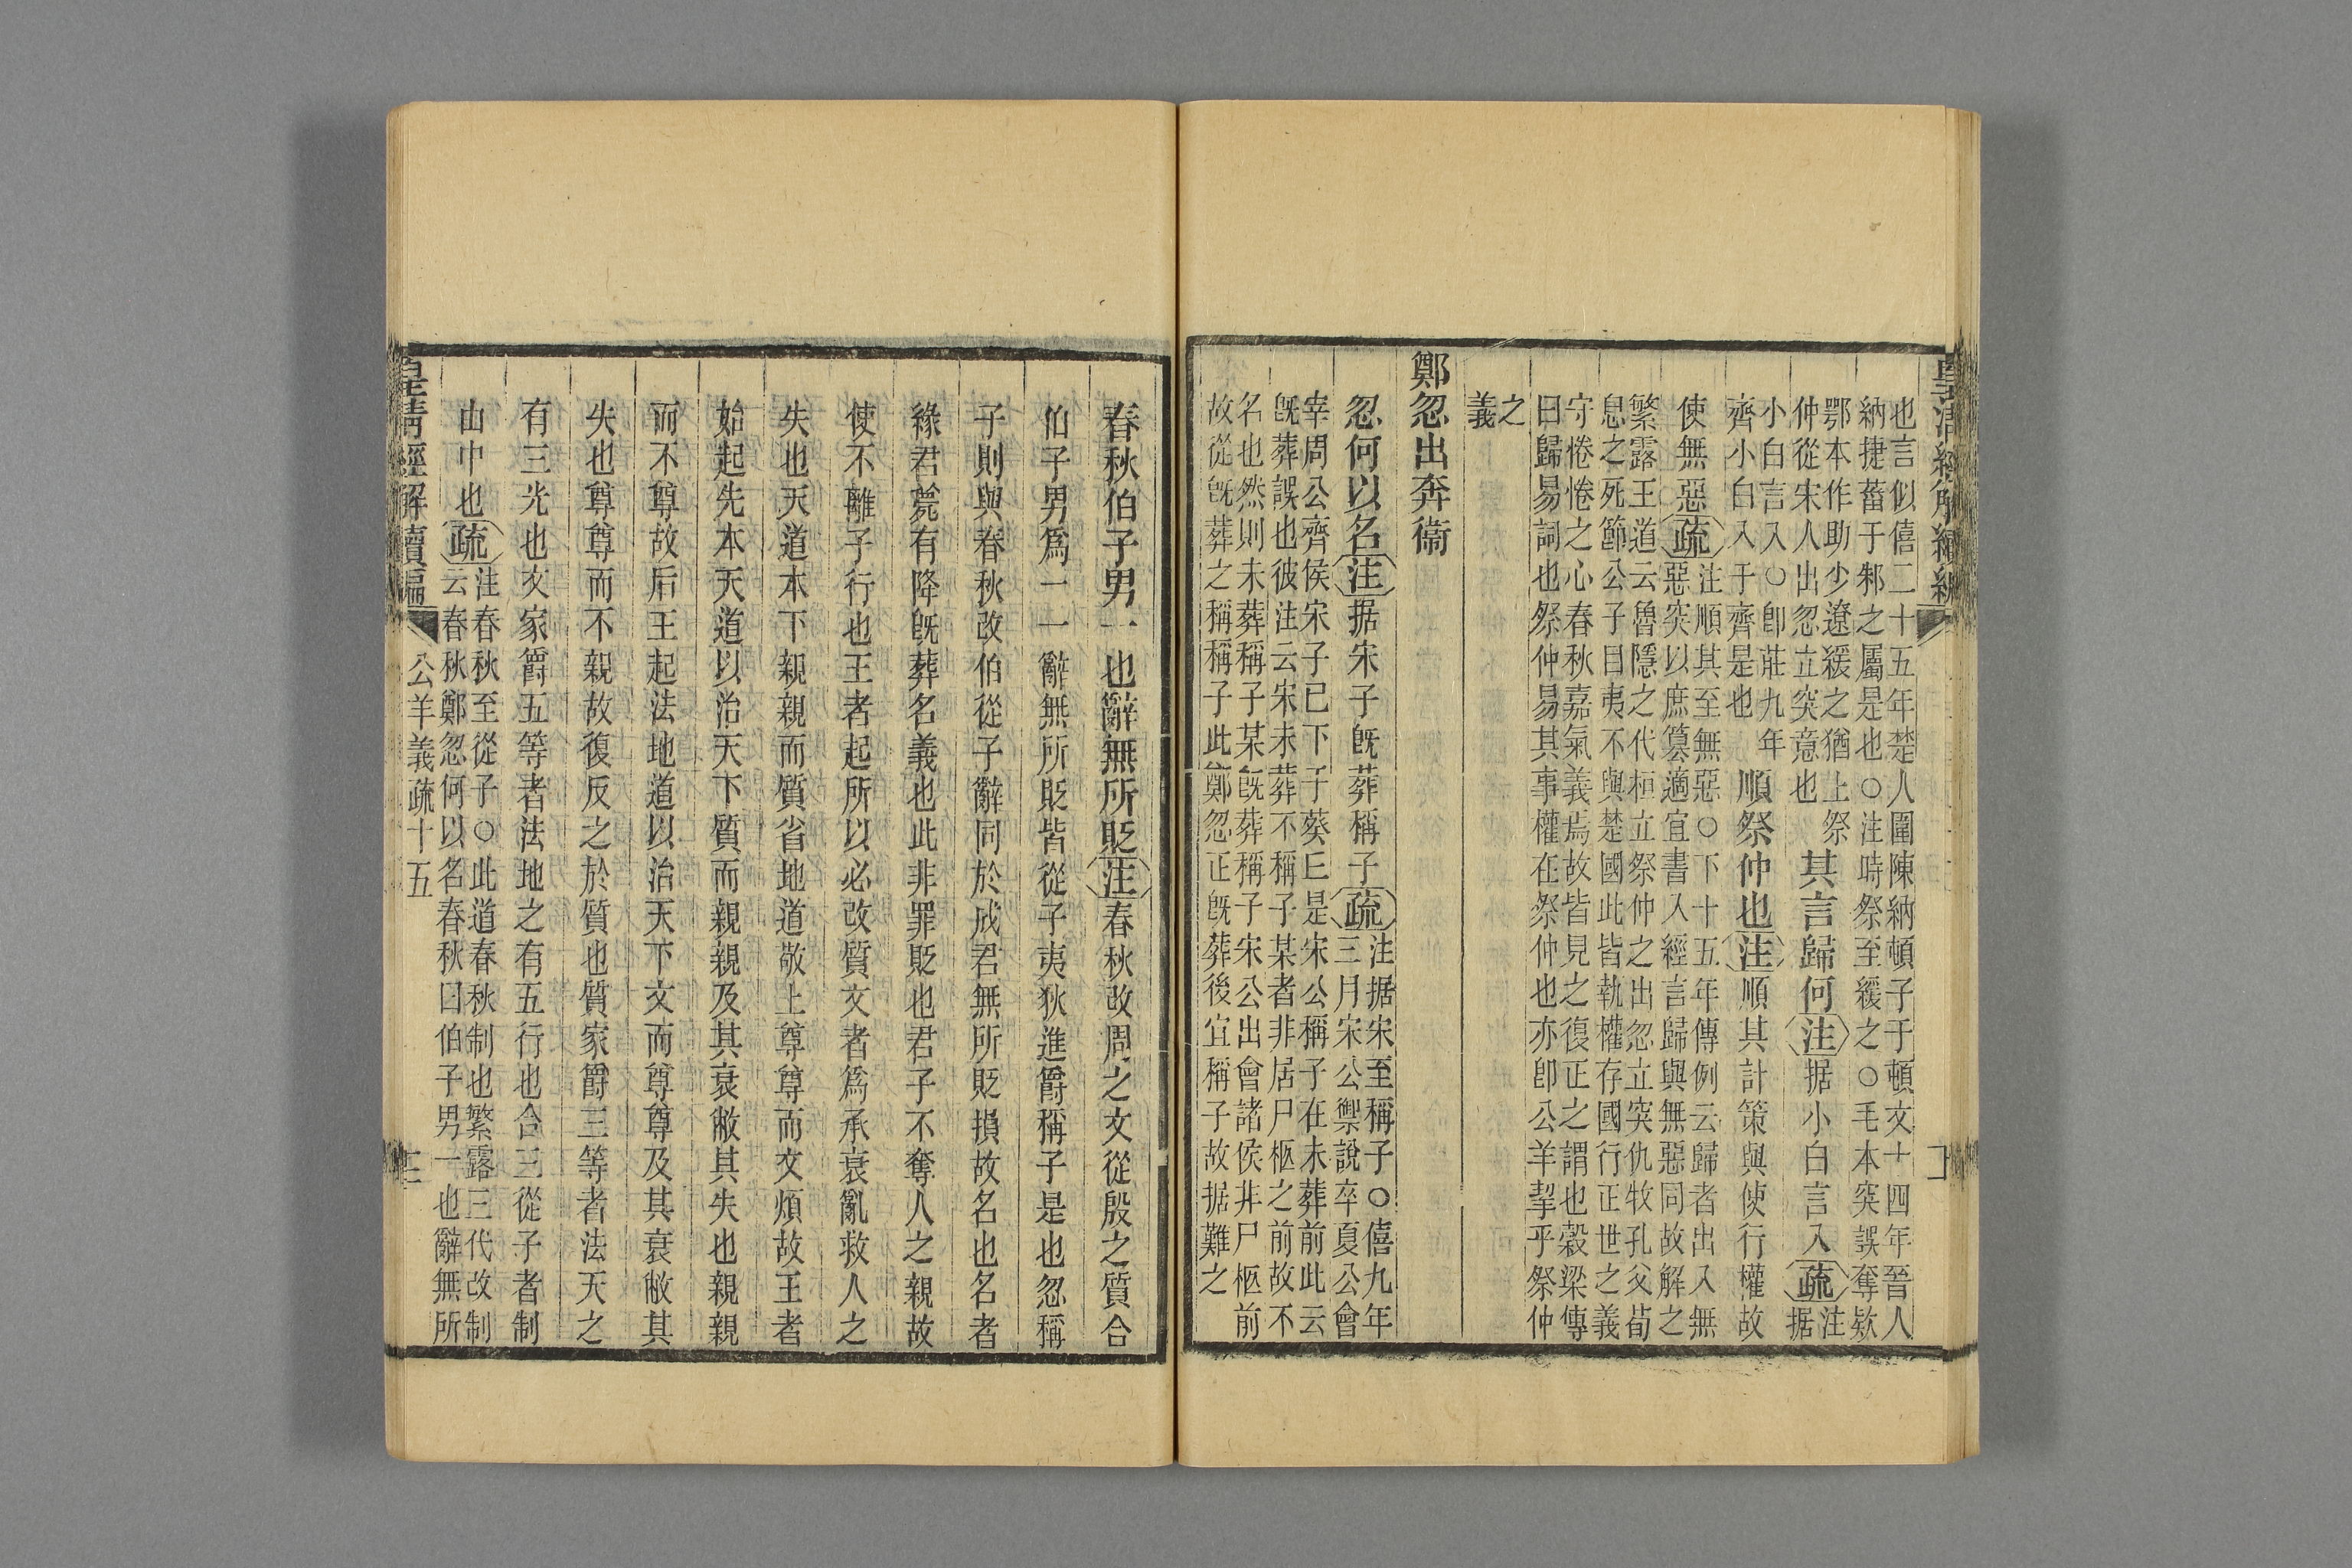 皇清經解續編
也言似僖二十五年楚人圍陳納頓子于頓文十四年晉人
納捷菑于邾之屬是也○注時祭至緩之○毛本突誤奪欵
鄂本作助少遼緩之猶上祭
仲從宋人出忽立突意也
其言歸何注据小白言入疏注
据
小白言入○卽莊九年
齊小白入于齊是也
順祭仲也注順其計策與使行權故
使無惡疏注順其至無惡○下十五年傳例云歸者出入無
惡突以庶簒適宜書入經言歸與無惡同故解之
繁露王道云魯隱之代桓立祭仲之出忽立突仇牧孔父荀
息之死節公子目夷不與楚國此皆執權存國行正世之義
守惓惓之心春秋嘉氣義焉故皆見之復正之謂也穀梁傳
曰歸易詞也祭仲易其事權在祭仲也亦卽公羊挈乎祭仲
之
義
鄭忽出奔衞
忽何以名注据宋子旣葬稱子疏注据宋至稱子○僖九年
三月宋公禦說卒夏公會
宰周公齊侯宋子已下于葵丘是宋公稱子在未葬前此云
旣葬誤也彼注云宋未葬不稱子某者非居尸柩之前故不
名也然則未葬稱子某旣葬稱子宋公出會諸侯非尸柩前
故從旣葬之稱稱子此鄭忽正旣葬後宜稱子故据難之
春秋伯子男一也辭無所貶注春秋改周之文從殷之質合
伯子男爲一一辭無所貶皆從子夷狄進爵稱子是也忽稱
子則與春秋改伯從子辭同於成君無所貶損故名也名者
緣君薨有降旣葬名義也此非罪貶也君子不奪人之親故
使不離子行也王者起所以必改質文者爲承衰亂救人之
失也天道本下親親而質省地道敬上尊尊而文煩故王者
始起先本天道以治天下質而親親及其衰敝其失也親親
而不尊故后王起法地道以治天下文而尊尊及其衰敝其
失也尊尊而不親故復反之於質也質家爵三等者法天之
有三光也文家爵五等者法地之有五行也合三從子者制
由中也疏注春秋至從子○此道春秋制也繁露三代改制
云春秋鄭忽何以名春秋曰伯子男一也辭無所
皇清經解續編
公羊義疏十五